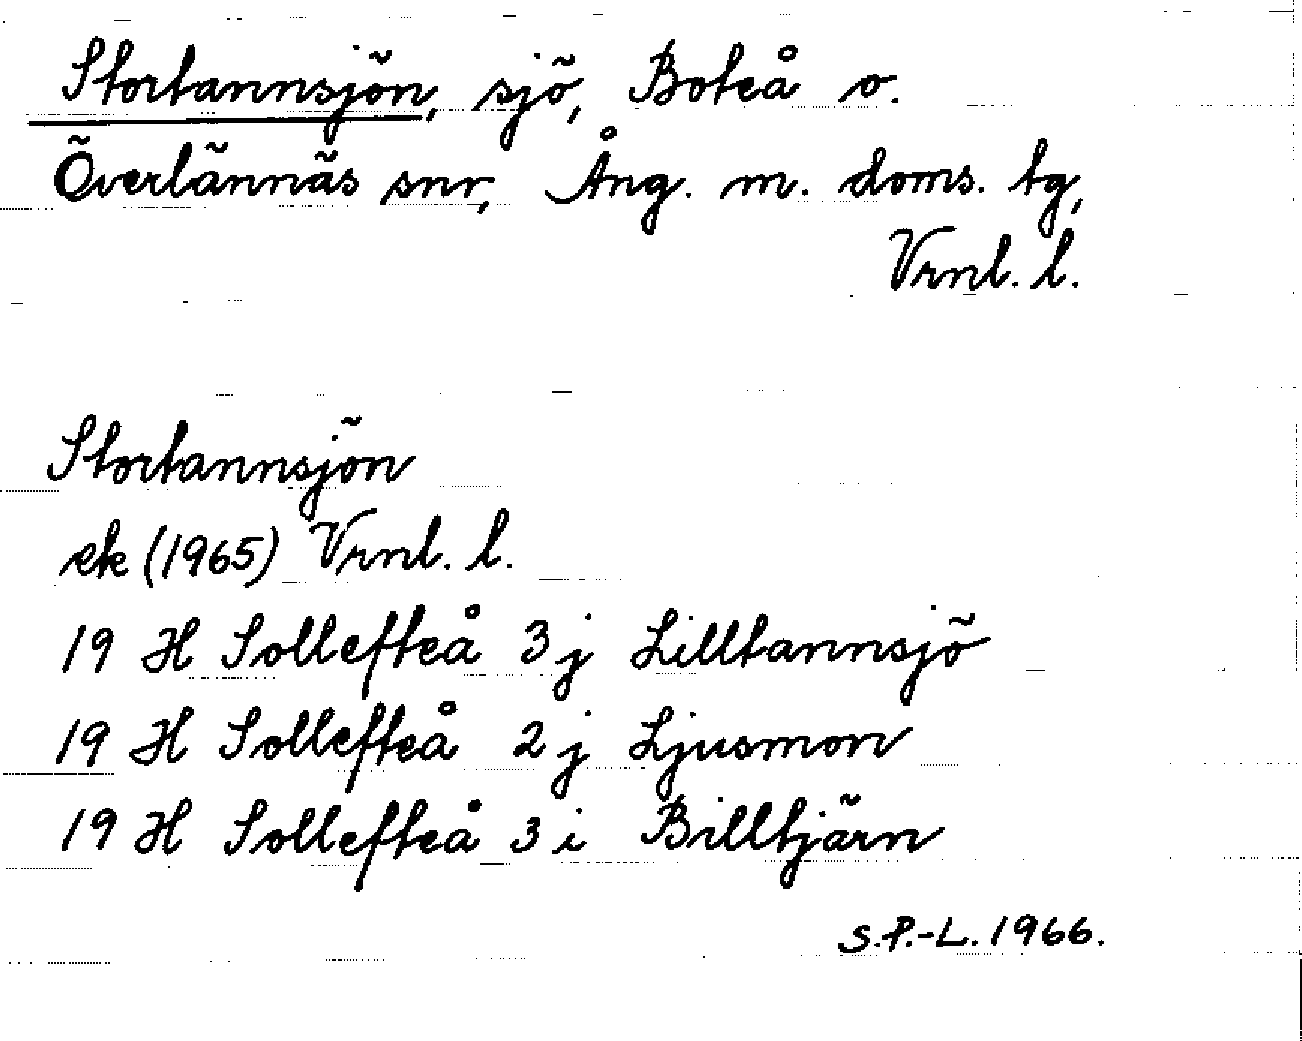 Stortannsjön, sjö, Boteå o.
Överlännäs snr, Ång. m. doms. tg,
Vrnl. l.
Stortannsjön
ek (1965) Vrnl. l.
19 H Sollefteå 3 j Lilltannsjö
19 H Sollefteå 2 j Ljusmon
19 H Sollefteå 3 i Billtjärn
S.P.-L. 1966.